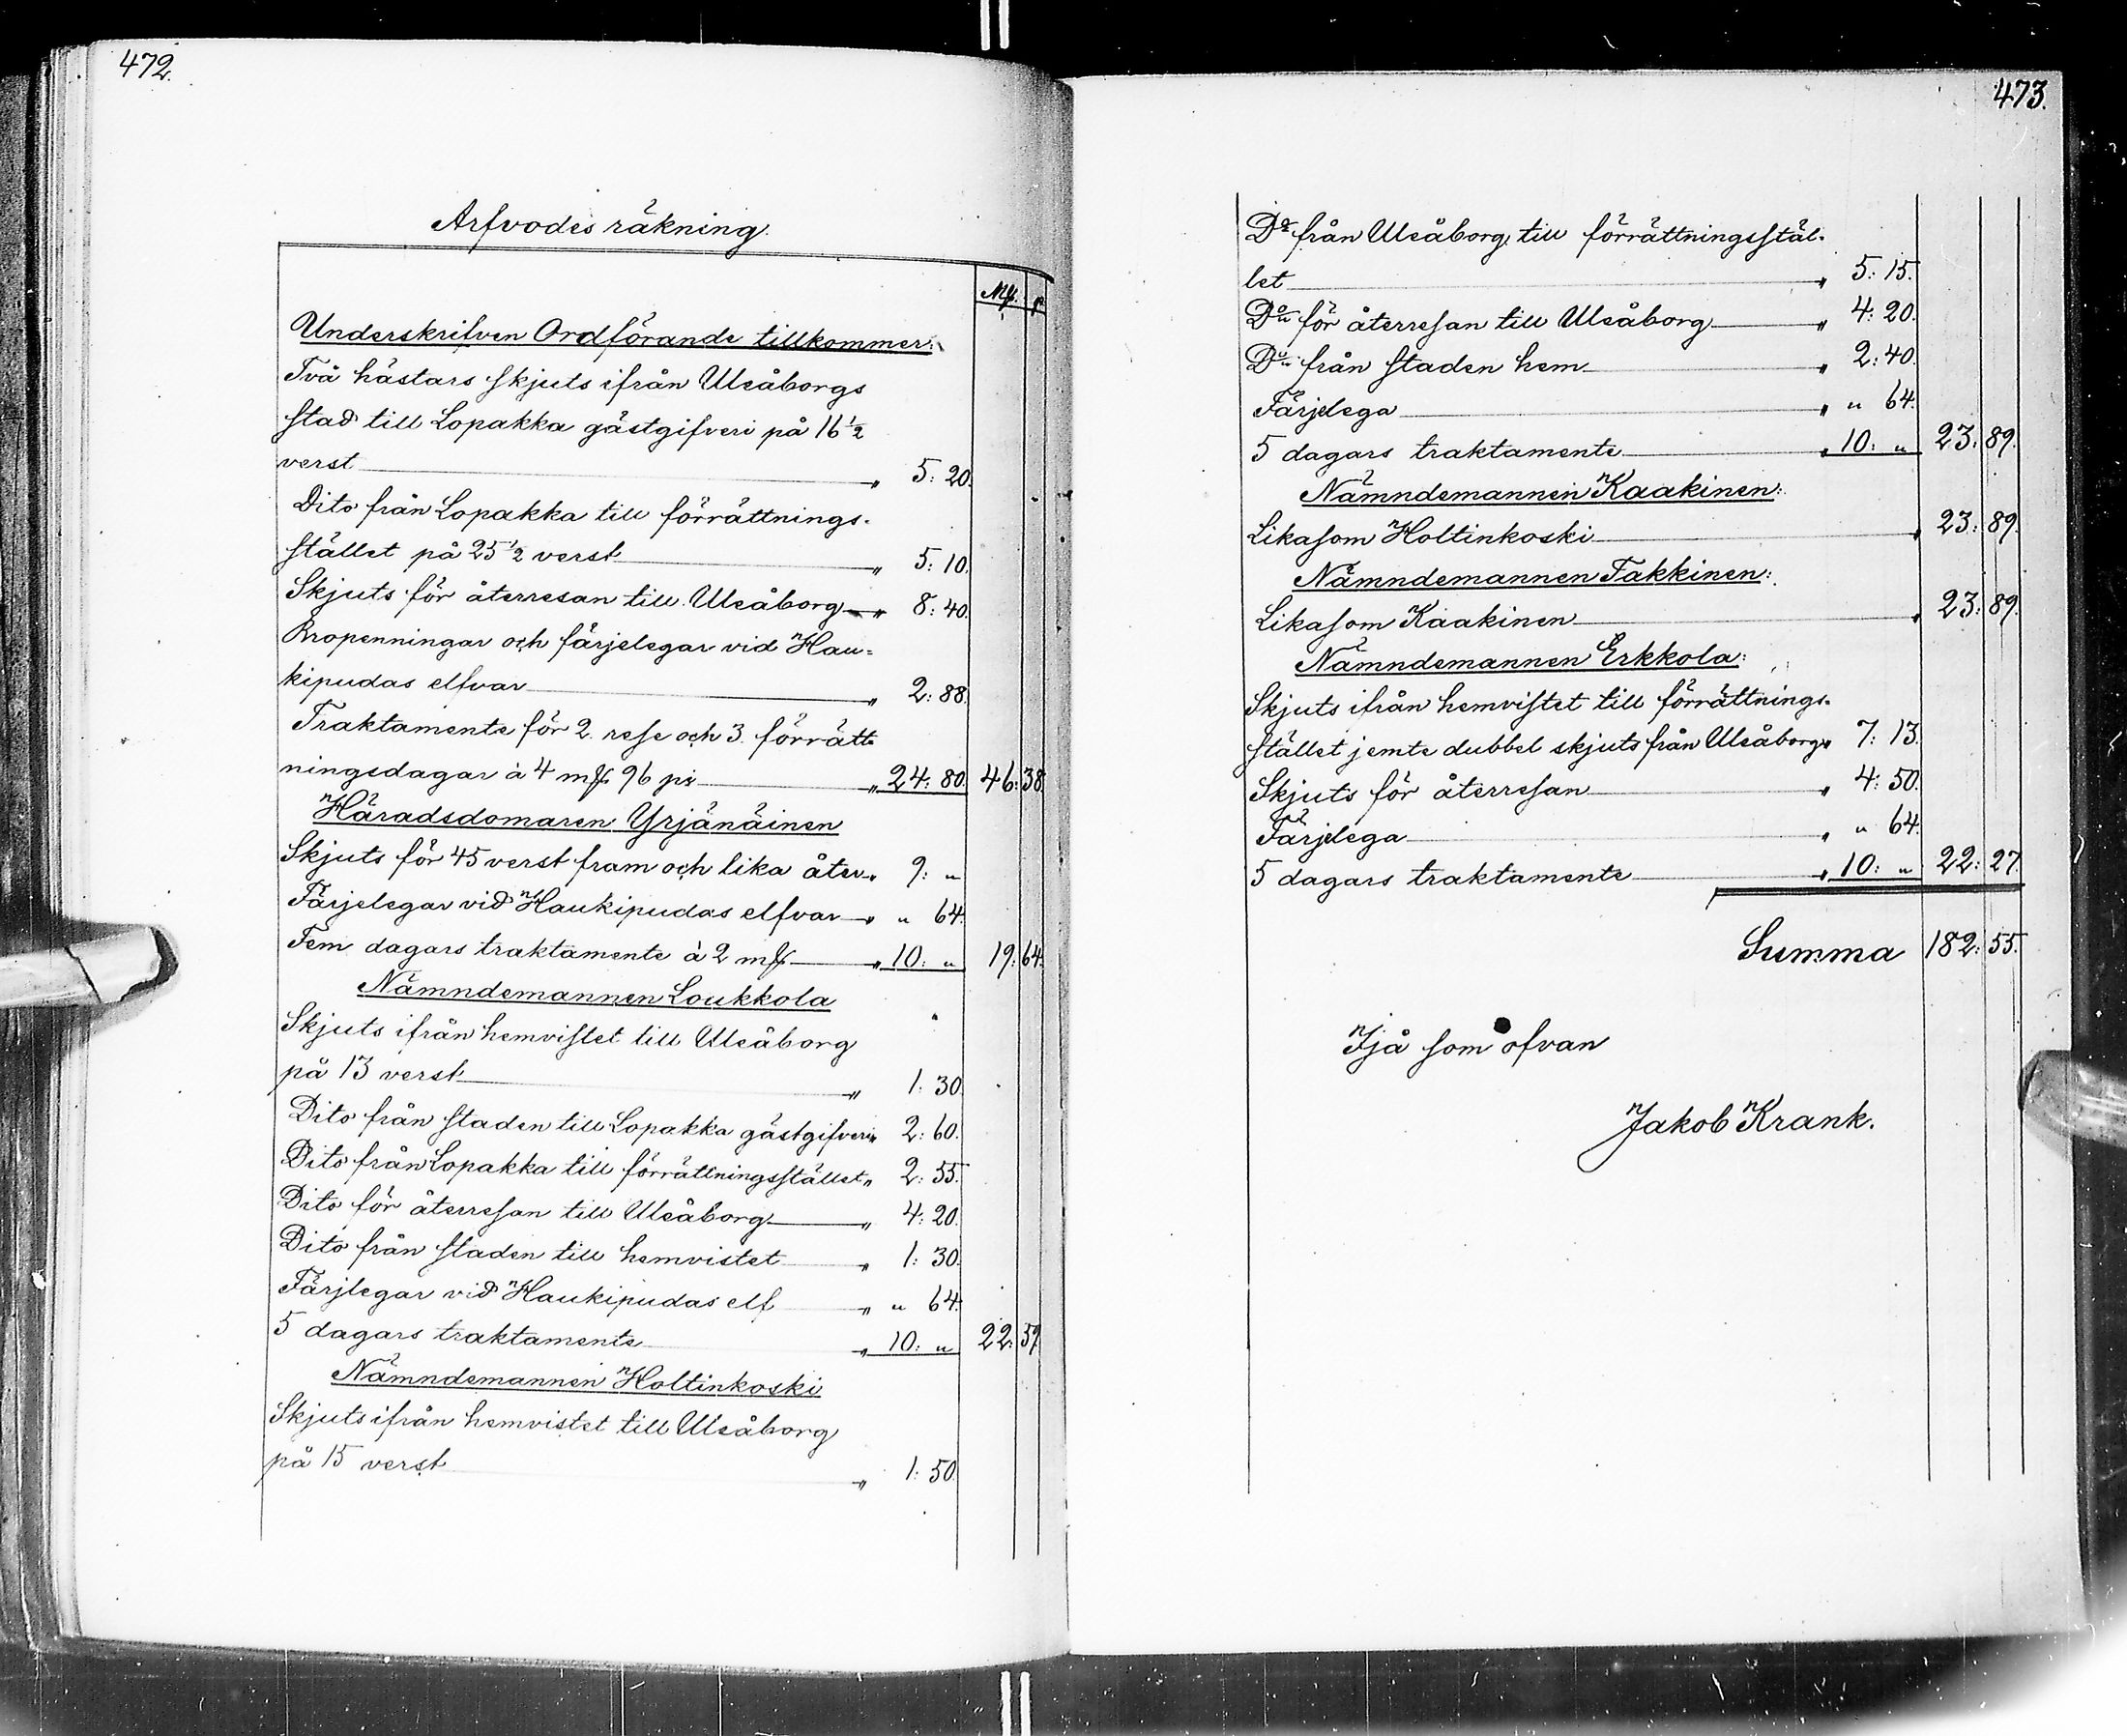 472.
Arfvodes räkning.
Mk. p.
Underskrifven Ordförande tillkommer:
Två hästars skjuts ifrån Uleåborgs
stad till Lopakka gästgifveri på 16 1/2
verst " 5: 20.
Dito från Lopakka till förrättnings-
stället på 25 1/2 verst " 5: 10.
Skjuts för återresan till Uleåborg " 8: 40.
Bropenningar och färjelegar vid Hau=
kipudas elfvar " 2: 88.
Traktamente för 2 rese och 3 förrätt=
ningsdagar à 4 mk 96 pi " 24: 80. 46: 38.
Häradsdomaren Yrjänäinen
Skjuts för 45 verst fram och lika åter " 9: "
Färjelegar vid Haukipudas elfvar " " 64.
Fem dagars traktamente à 2 mk " 10: " 19: 64.
Nämndemannen Loukkola
Skjuts ifrån hemvistet till Uleåborg
på 13 verst " 1: 30.
Dito från staden till Lopakka gästgifveri " 2: 60.
Dito från Lopakka till förrättningsstället " 2: 55.
Dito för återresan till Uleåborg " 4: 20.
Dito från staden till hemvistet " 1: 30.
Färjlegar vid Haukipudas elf " " 64.
5 dagars traktamente " 10: " 22: 59.
Nämndemannen Holtinkoski
Skjuts ifrån hemvistet till Uleåborg
på 15 verst " 1: 50.
473.
Do från Uleåborg till förrättningsstäl-
let " 5: 15.
Do för återresan till Uleåborg " 4: 20.
Do från staden hem " 2: 40.
Färjelega " " 64.
5 dagars traktamente " 10: " 23: 89.
Nämndemannen Kaakinen:
Likasom Holtinkoski " 23: 89.
Nämndemannen Takkinen:
Likasom Kaakinen " 23: 89.
Nämndemannen Erkkola:
Skjuts ifrån hemvistet till förrättnings-
stället jemte dubbel skjuts från Uleåborg " 7: 13.
Skjuts för återresan " 4: 50.
Färjelega " " 64.
5 dagars traktamente " 10: " 22: 27.
Summa 182: 55.
Ijå som ofvan
Jakob Krank.